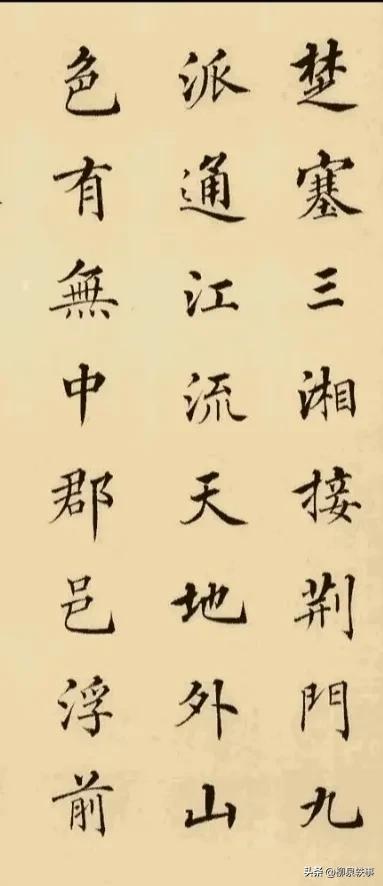 楚塞三湘接荆門九
派通江流天地外山
色有無中郡邑浮前
头条 @柳泉轶事